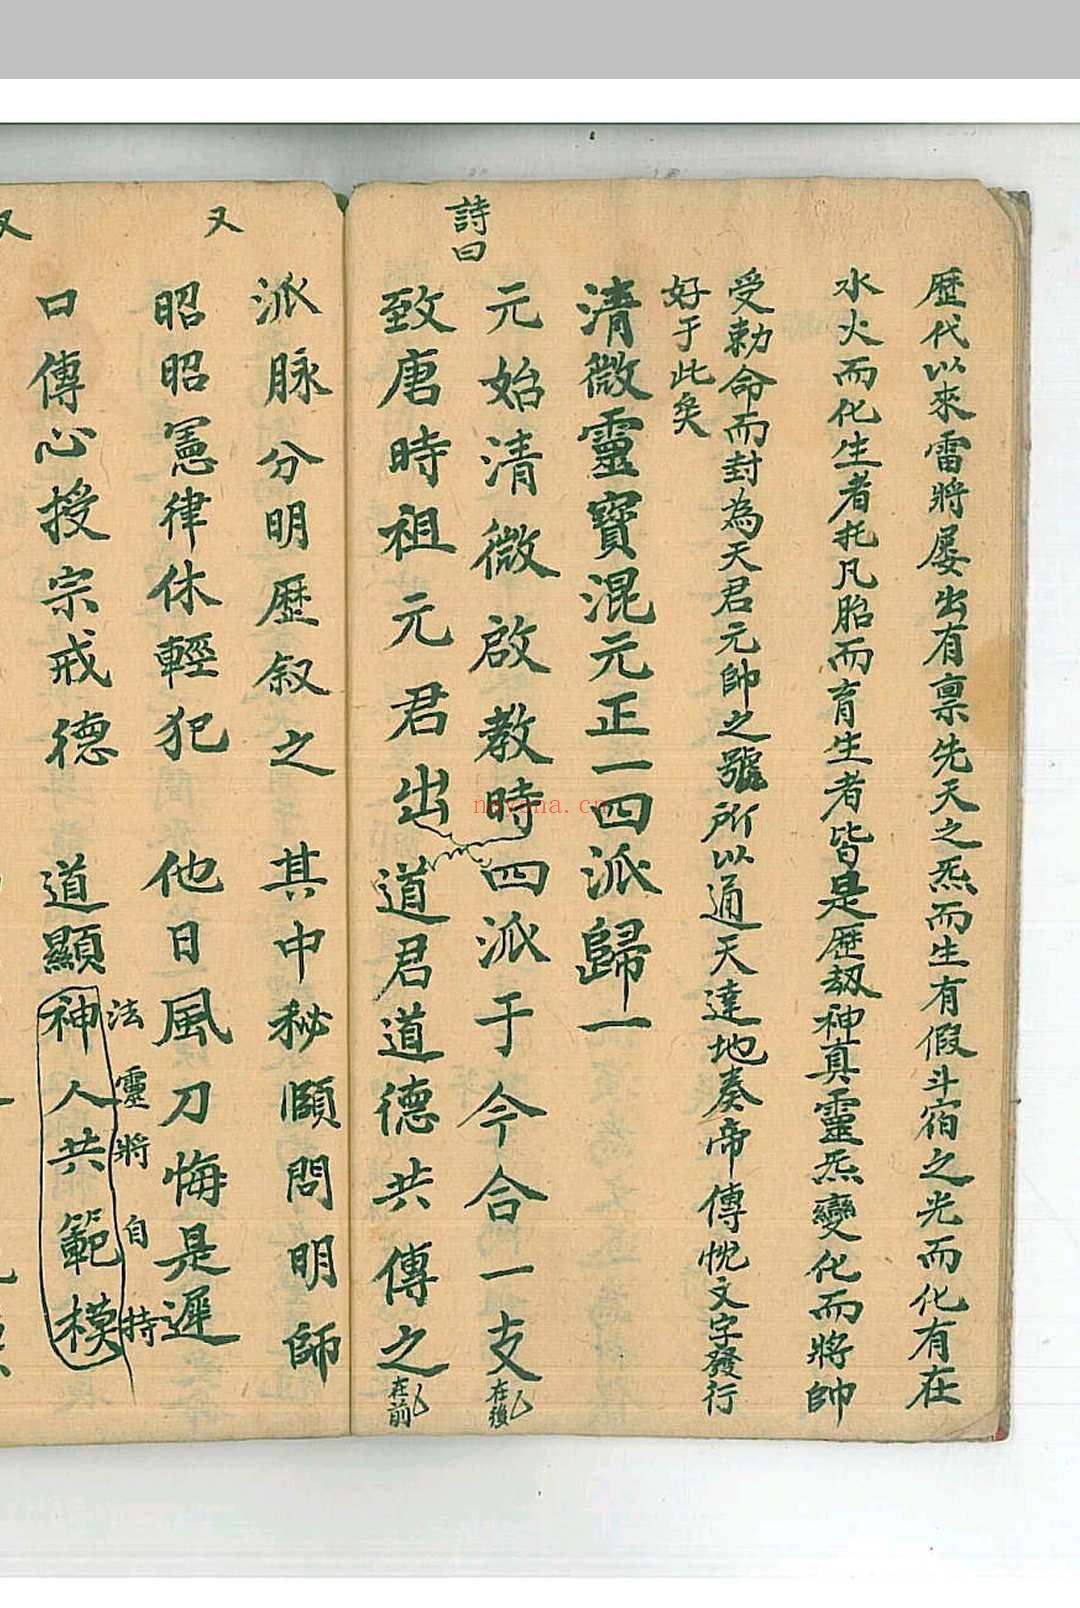 歷代以來雷將屢出有稟先天之炁而生有假斗宿之光而化有在
水火而化生者托凡胎而育生者皆是歷劫神真靈炁變化而將帥
受勅命而封為天君元帥之號所以通天達地奏帝傳悅文字發行
好于此矣
清微靈寶混元正一四派歸一
詩曰
元始清微啟教時四派于今合一支
在後
致唐時祖元君出道君道德共傳之
在前
派脉分明歷叙之其中秘願問明師
又
昭昭憲律休輕犯他日風刀悔是遲
法靈將自持
口傳心授宗戒德道顯神人共範模
又
nayona.cn